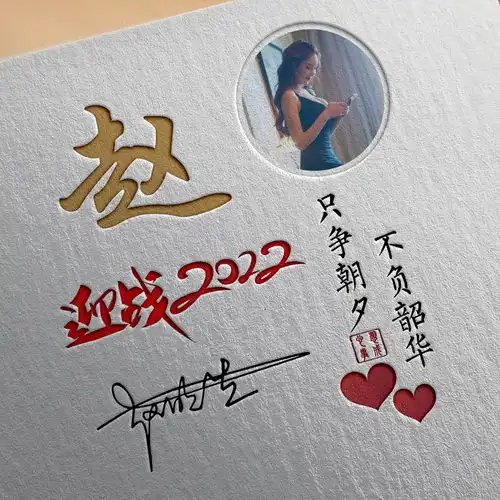 赵
迎战2022
只争朝夕
不负韶华